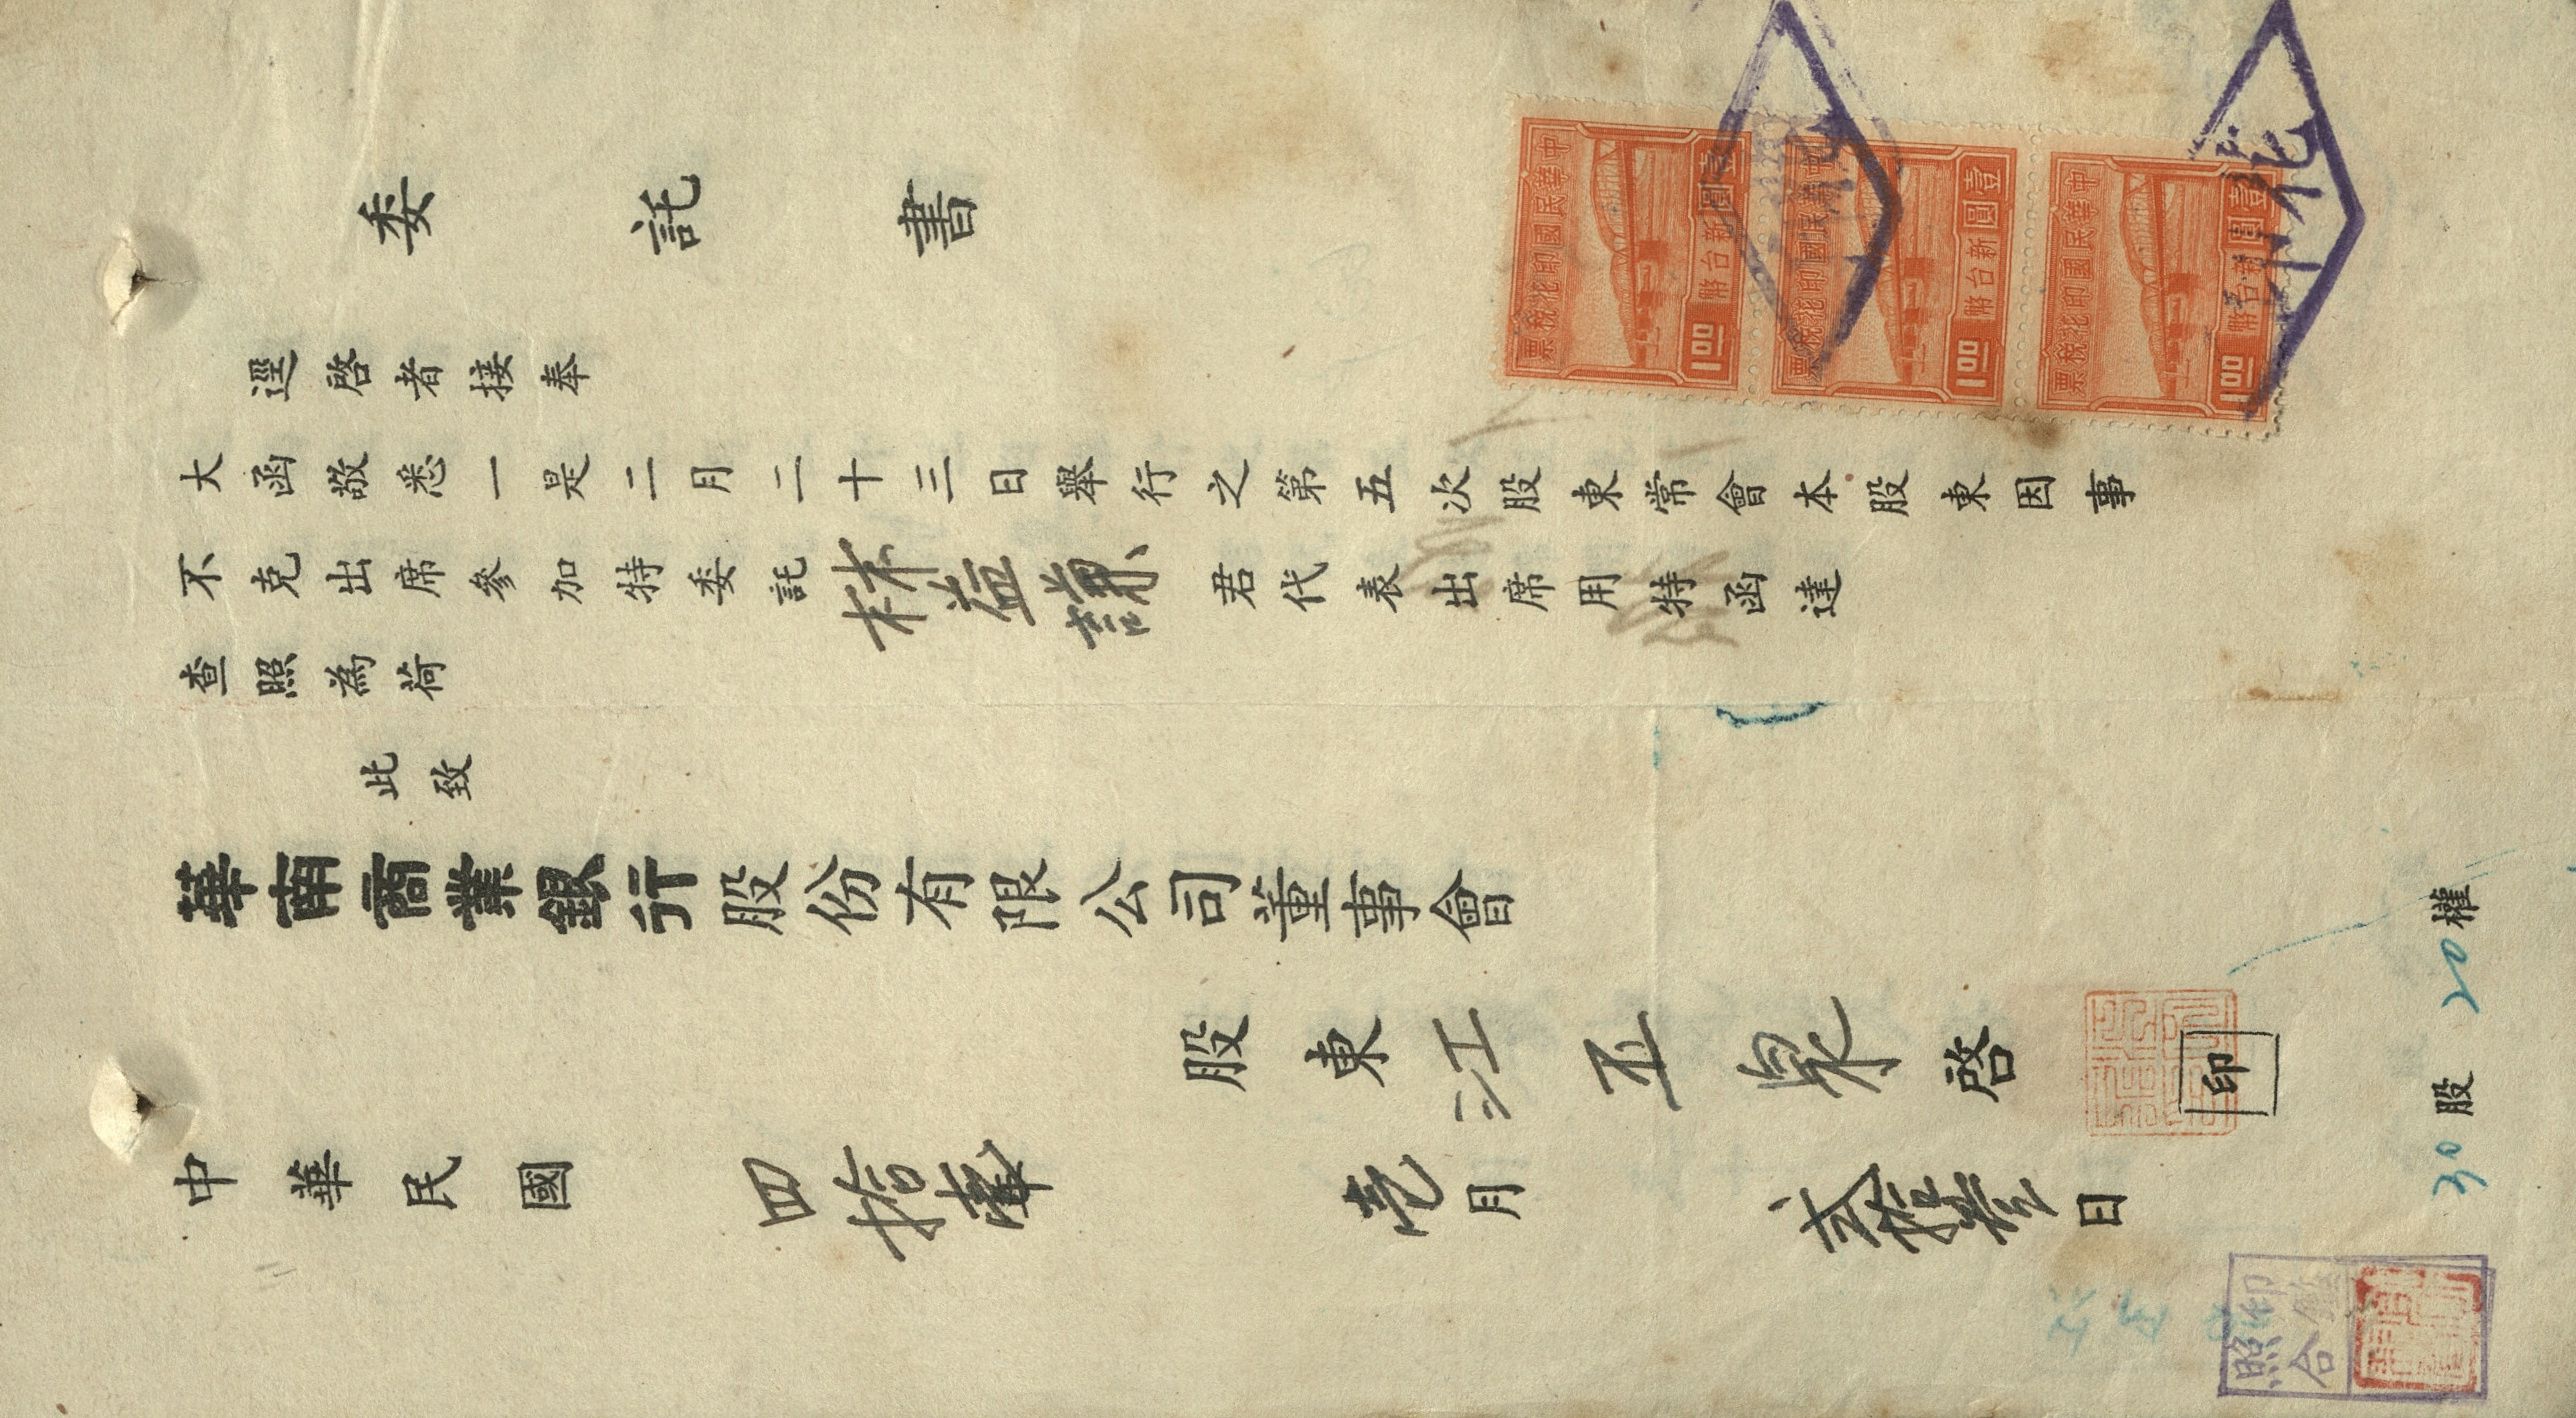 委託書
逕啓者接奉
大函敬悉一是二月二十三日舉行之第五次股東常會本股東因事
不克出席參加特委託林益謙君代表出席用特函達
查照為荷
此致
華南商業銀行股份有限公司董事會
股東江丕泉啓
印
中華民國四拾 壹月貳拾 日
30股 20權
中華民國印花稅票
新台幣壹圓
1.00
中華民國印花稅票
新台幣壹圓
1.00
中華民國印花稅票
新台幣壹圓
1.00
印鑑
照合